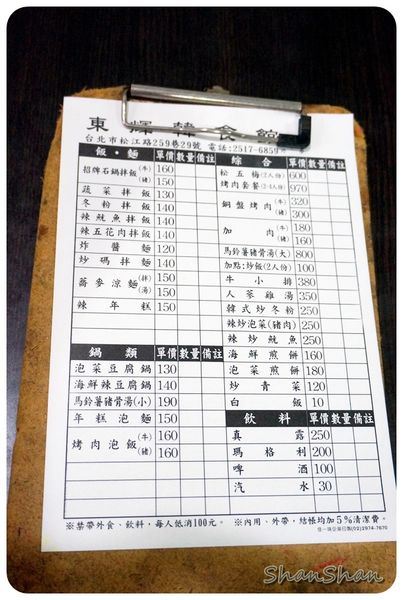 東輝韓食館
台北市松江路259巷29號 電話:2517-6859
飯・麵 單價 數量 備註
招牌石鍋拌飯(牛) 160
(豬) 150
蔬菜拌飯 130
冬粉拌飯 140
辣魷魚拌飯 140
辣五花肉拌飯 140
炸醬麵 120
炒碼拌麵 140
蕎麥涼麵(拌) 150
(湯) 150
辣年糕 150
鍋類 單價 數量 備註
泡菜豆腐鍋 130
海鮮辣豆腐鍋 140
馬鈴薯豬骨湯(小) 190
年糕泡麵 150
烤肉泡飯(牛) 160
(豬) 160
綜合 單價 數量 備註
松五梅(2人份) 600
烤肉套餐(2-4人份) 970
銅盤烤肉(牛) 320
(豬) 300
加肉(牛) 180
(豬) 160
馬鈴薯豬骨湯(大) 800
加點:炒飯(2人份) 100
牛小排 380
人蔘雞湯 350
韓式炒冬粉 250
辣炒泡菜(豬肉) 250
辣炒魷魚 250
海鮮煎餅 160
泡菜煎餅 180
炒青菜 120
白飯 10
飲料 單價 數量 備註
真露 250
瑪格利 200
啤酒 100
汽水 30
※禁帶外食、飲料,每人低消100元。 ※內用、外帶,結帳均加5%清潔費。
佳一味企業印製(02)2974-7670
ShanShan